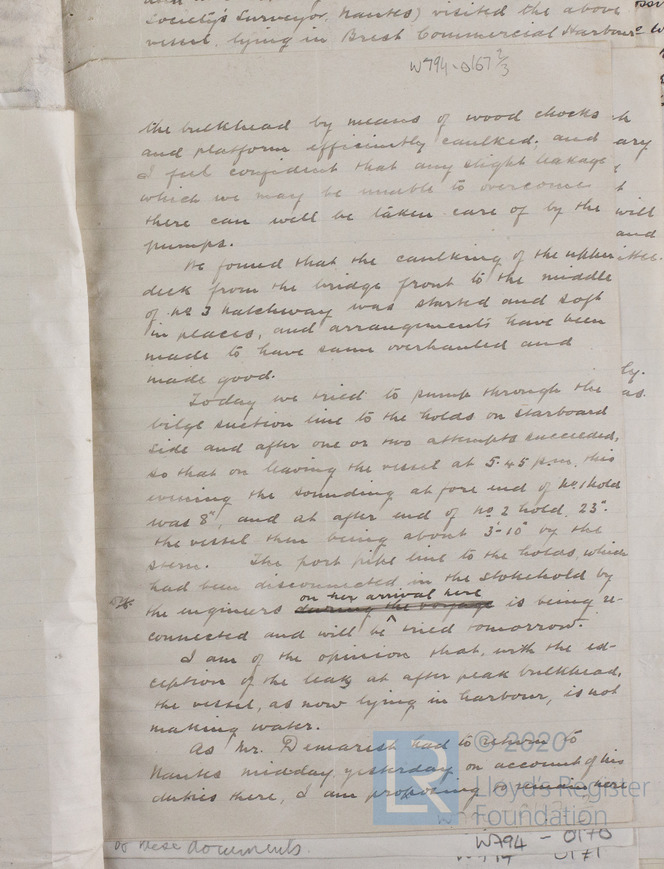 Society's Surveyor, Nantes) visited the above
vessel, lying in Brest Commercial Harbour
W794-0167 2/3
the bulkhead by means of wood chocks
and platform efficiently caulked, and
I feel confident that any slight leakage
which we may be unable to overcome
there can well be taken care of by the
pumps.
We found that the caulking of the upper
deck from the bridge front to the middle
of No 3 hatchway was started and soft
in places, and arrangements have been
made to have same overhauled and
made good.
Today we tried to pump through the
bilge suction line to the holds on starboard
side and after one or two attempts succeeded,
so that on leaving the vessel at 5.45 p.m. this
evening the sounding at fore end of No 1 hold
was 8", and at after end of No 2 hold 23".
the vessel then being about 3'-10" by the
stern. The port pipe line to the holds, which
had been disconnected in the stokehold by
on her arrival here
the engineers during the voyage is being re-
connected and will be tried tomorrow.
I am of the opinion that, with the ex-
ception of the leak at after peak bulkhead,
the vessel, as now lying in harbour, is not
making water.
As Mr. Demarest had to return to
Nantes midday yesterday on account of his
duties there, I am proposing to remain here
will
and
ly.
as.
© 2020
LR
Lloyd's Register
Foundation
W794 - 0170
0171
to these documents.